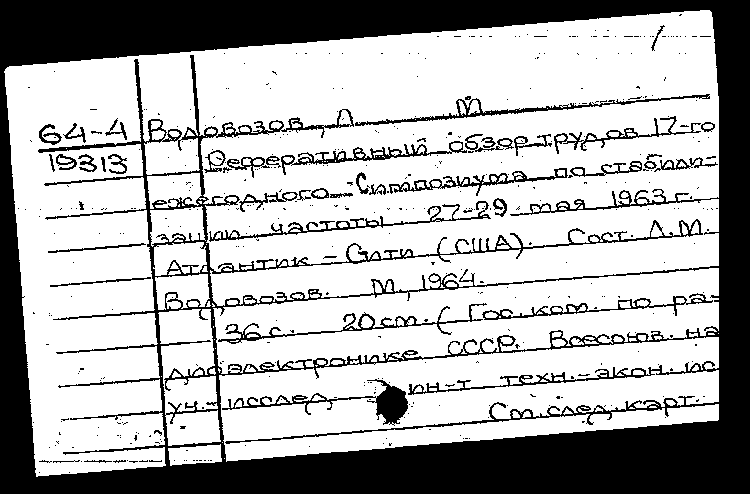 1
64-4 Водовозов, Л М
19313 Реферативный обзор трудов 17-го
ежегодного Симпозиума по стабили-
зации частоты. 27-29 мая 1963 г.
Атлантик-Сити (США). Сост. Л.М.
Водовозов. М., 1964.
36 с. 20 см. (Гос. ком. по ра-
диоэлектронике СССР. Всесоюз. на
уч.-исслед. ин-т техн.-экон. ис
См. след. карт.